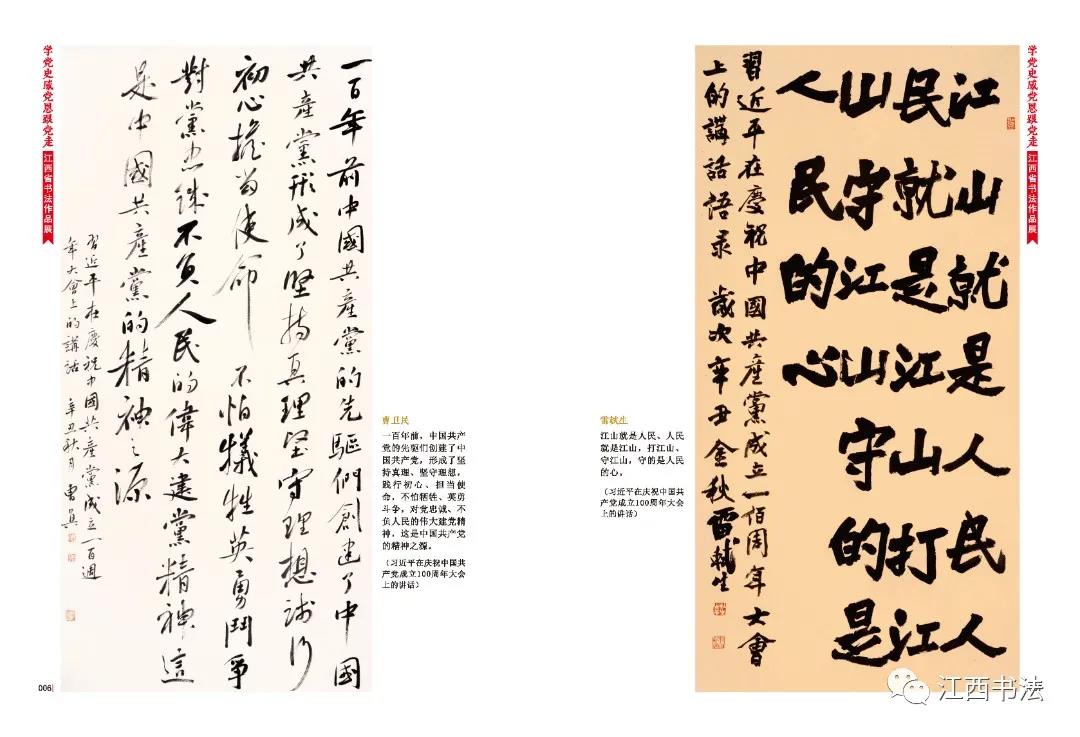 学党史感党恩跟党走
江西省书法作品展
一百年前中國共產黨的先驅們創建了中國
共產黨形成了堅持真理堅守理想踐行
初心擔當使命不怕犧牲英勇鬥爭
對黨忠誠不負人民的偉大建黨精神這
是中國共產黨的精神之源
習近平在慶祝中國共產黨成立一百週
年大會上的講話 辛丑秋月 曹
曹卫民
一百年前，中国共产
党的先驱们创建了中
国共产党，形成了坚
持真理、坚守理想，
践行初心、担当使
命，不怕牺牲、英勇
斗争，对党忠诚、不
负人民的伟大建党精
神，这是中国共产党
的精神之源。
（习近平在庆祝中国共
产党成立100周年大会
上的讲话）
006
雷轼生
江山就是人民、人民
就是江山，打江山、
守江山，守的是人民
的心。
（习近平在庆祝中国共
产党成立100周年大会
上的讲话）
江山就是人民人
民就是江山打江
山守江山守的是
人民的心
習近平在慶祝中國共產黨成立一佰周年大會
上的講話語录 歲次辛丑金秋雷軾生
学党史感党恩跟党走
江西省书法作品展
江西书法